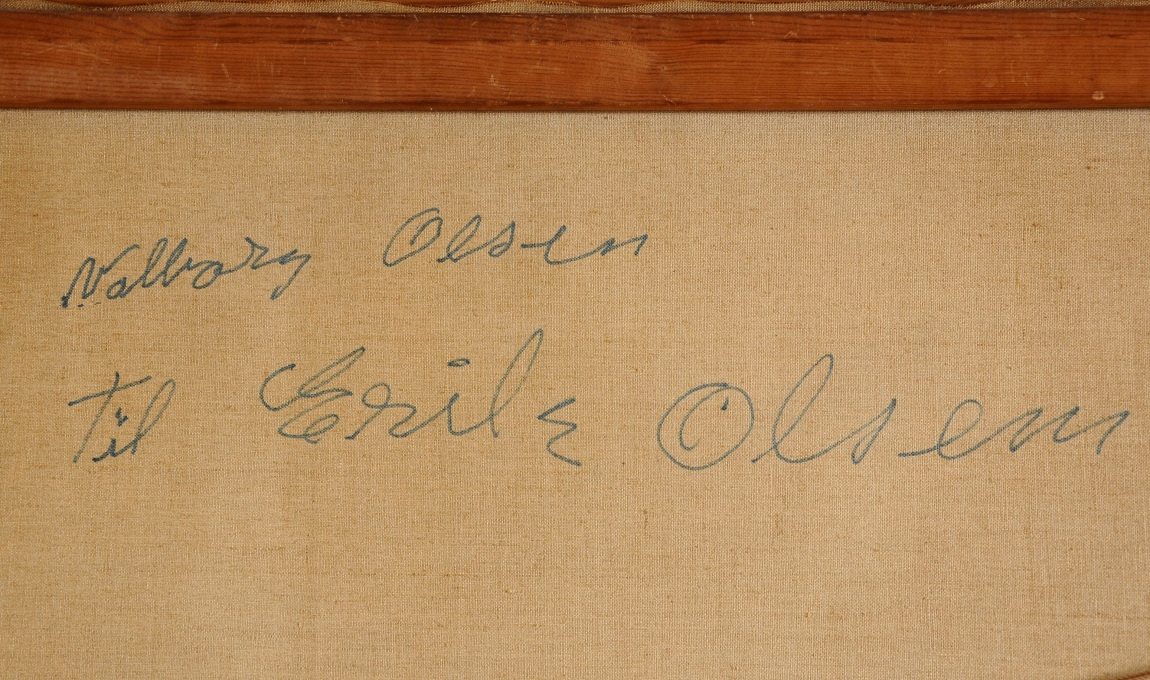 Valborg Olsen
til Erik Olsen